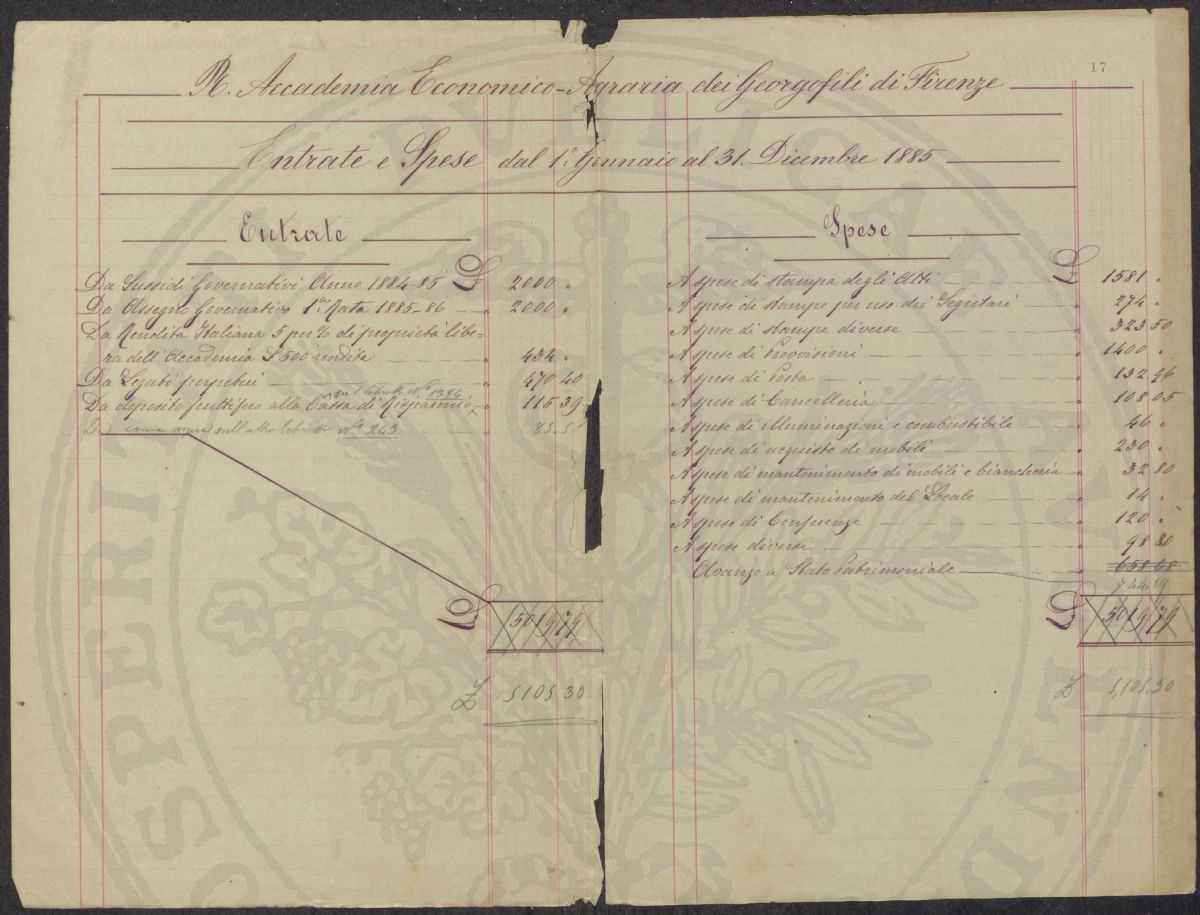 17
R. Accademia Economico-Agraria dei Georgofili di Firenze
Entrate e Spese dal 1.° Gennaio al 31. Dicembre 1885
Entrate
Da Sussidi Governativi Anno 1884-85 £ 2000 "
Da Assegno Governativo 1.a Rata 1885-86 " 2000 "
Da Rendita Italiana 5 per % di proprietà libe-
ra dell'Accademia £ 500 rendita " 434 "
Da Legati perpetui " 470 40
sul libretto N.° 1384
Da deposito fruttifero alla Cassa di Risparmio " 115 39
come sopra sull'altro libretto N.° 243 85.51
£ 5019 79
£ 5105 30
Spese
A spese di stampa degli Atti £ 1581 "
A spese di stampe per uso dei Segretari " 274 "
A spese di stampe diverse " 323 50
A spese di Provvisioni " 1400 "
A spese di Posta " 132 96
A spese di Cancelleria " 108 05
A spese di illuminazioni e combustibile " 46 "
A spese di acquisto di mobili " 230 "
A spese di mantenimento di mobili e biancheria " 32 80
A spese di mantenimento del Locale " 14 "
A spese di Conferenze " 120 "
A spese diverse " 98 80
Avanzo a Stato Patrimoniale " 658 68
744.19
£ 5019 79
£ 5,105.30
PROSPERITATI PUBLICAE AUGENDAE